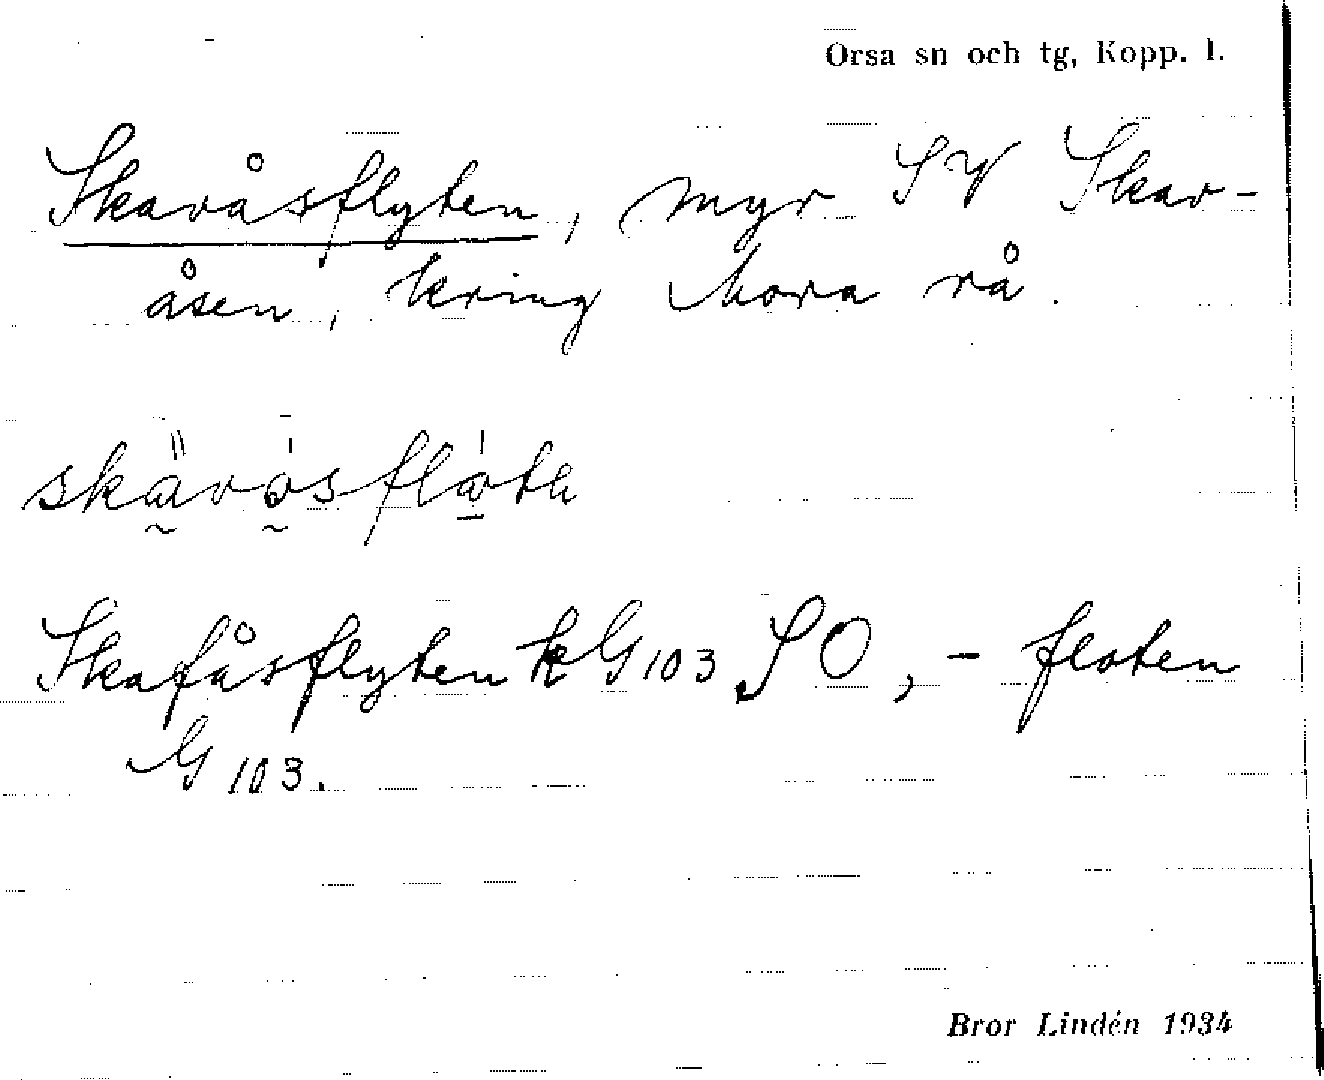 Orsa sn och tg, Kopp. l.
Skavåsflyten, myr SV Skav-
åsen, kring Mora rå.
Skafåsflyten k G103 SO, - floten
G103.
Bror Lindén 1934